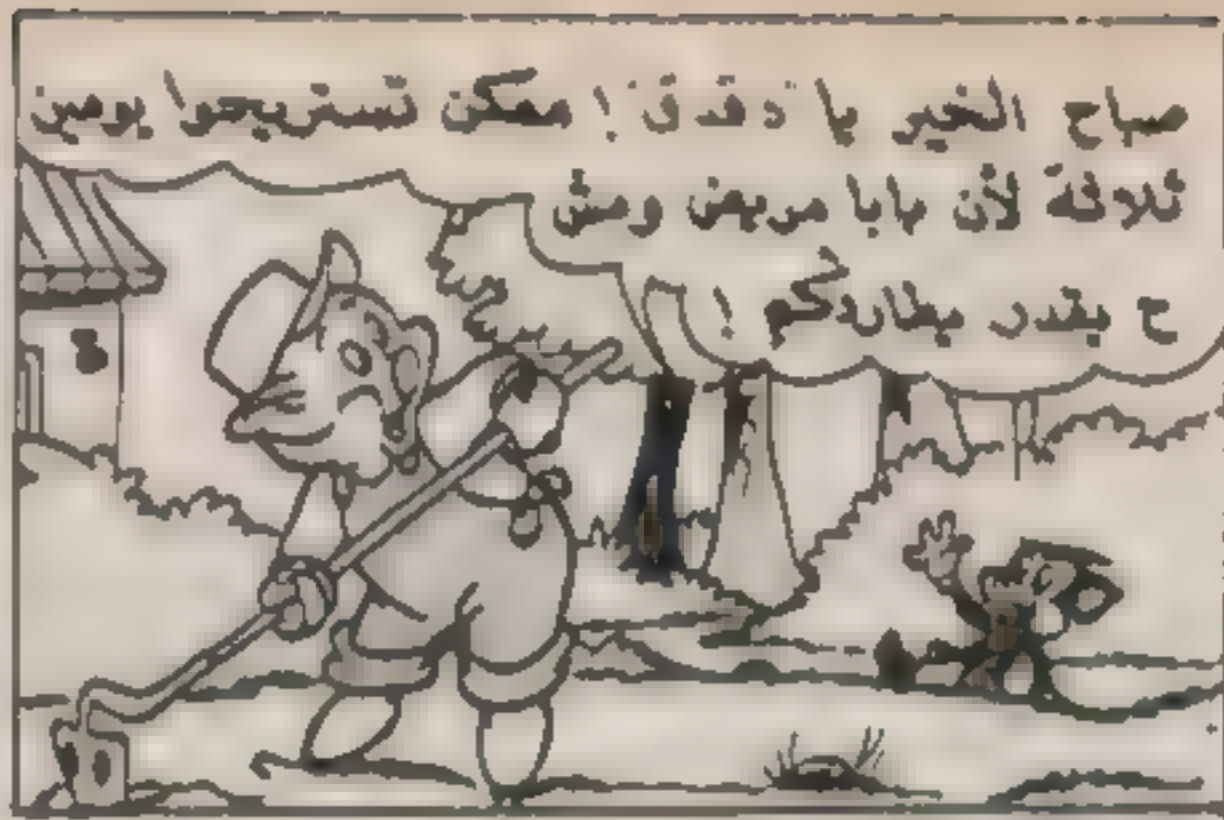 صباح الخير يا دقدق! ممكن تستريحوا يومين
ثلاثة لأن بابا مريض ومش
ح يقدر يطاردكم!